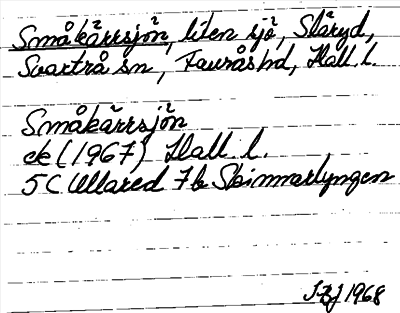 Småkärrsjön, liten sjö, Släryd,
Svartrå sn, Fauråshd, Hall. l.
Småkärrsjön
ek (1967) Hall. l.
5C Ullared 7b Skinnarlyngen
1968